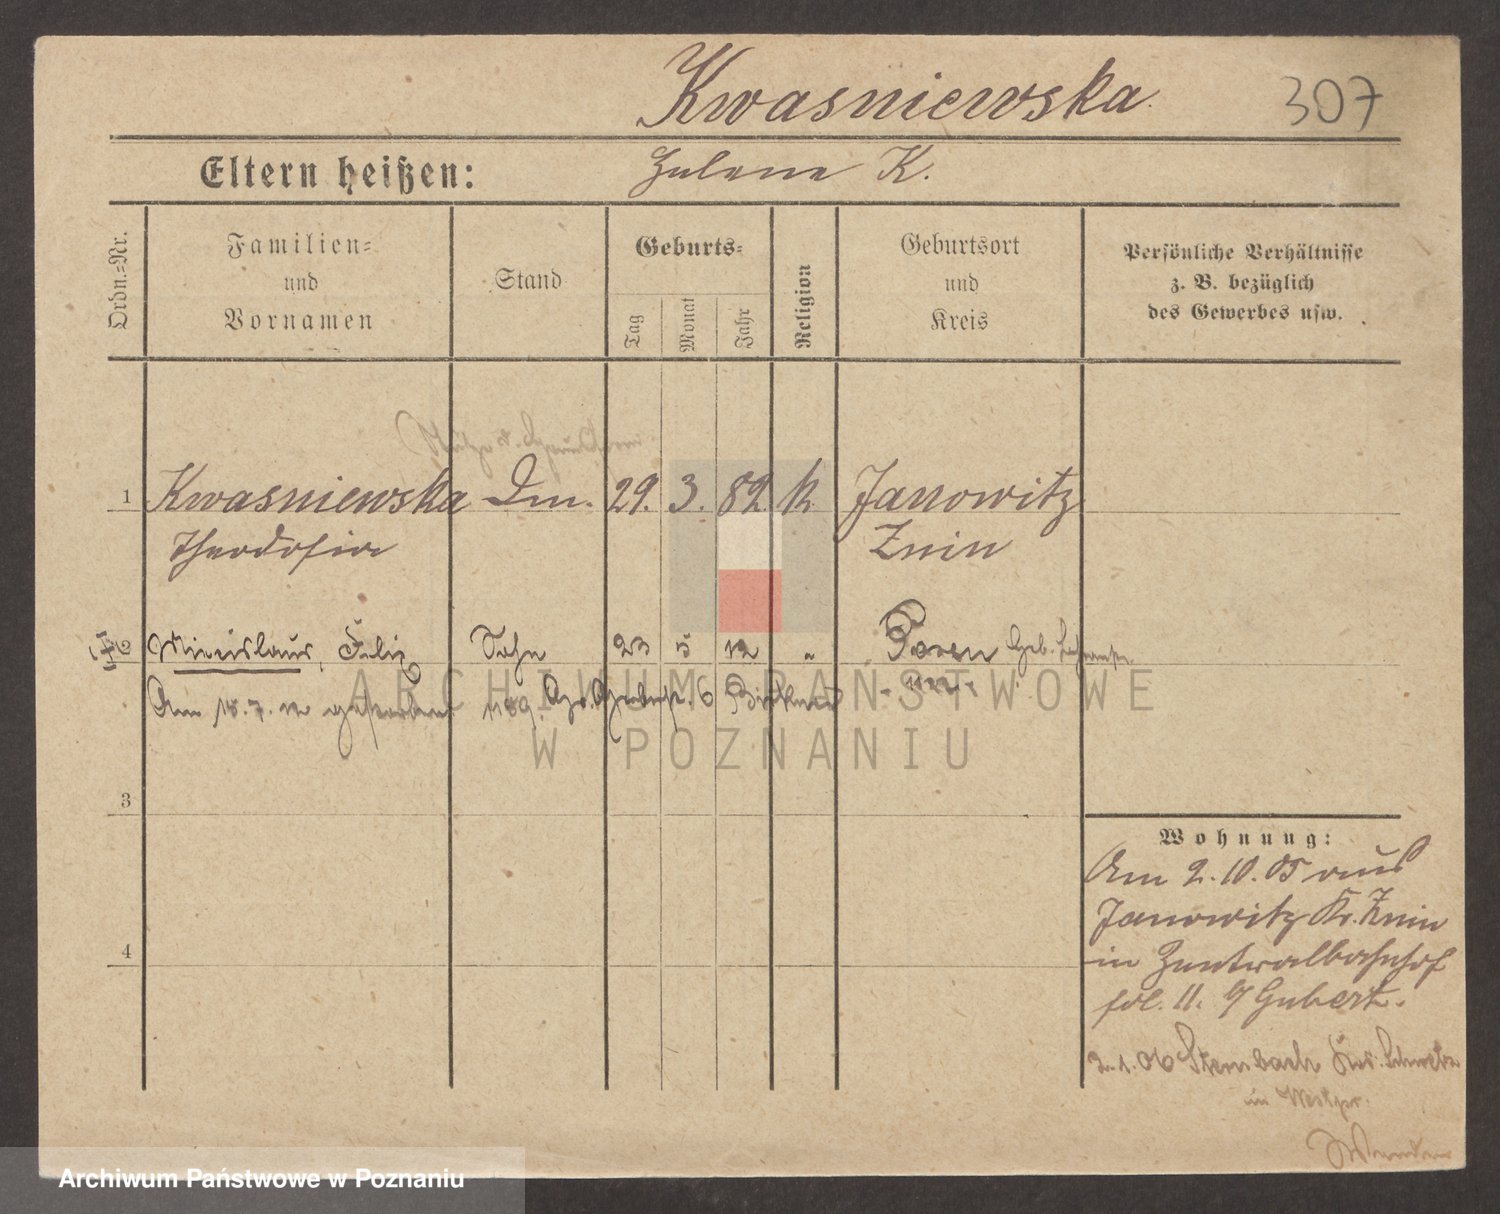 Kwasniewska
307
Eltern heißen:
Helene K.
Ordn.=Nr.
Familien= und Vornamen
Stand
Geburts=
Tag
Monat
Jahr
Religion
Geburtsort und Kreis
Persönliche Verhältnisse z. B. bezüglich des Gewerbes usw.
Stütze d. Hausfrau
1 Kwasniewska Dm. 29. 3. 82 k. Janowitz
Theodosia Znin
2 Felix Sohn 23 5 12 „ Posen Geb.
Am 15. 7. 12 gestorben 1189
ARCHIWUM PAŃSTWOWE
W POZNANIU
3
Wohnung:
Am 2.10.05 aus
Janowitz Kr. Znin
4
in Zentralbahnhof
fol. 11. b/ Gubert.
2.1.06 Schwetz
in Westpr.
Archiwum Państwowe w Poznaniu